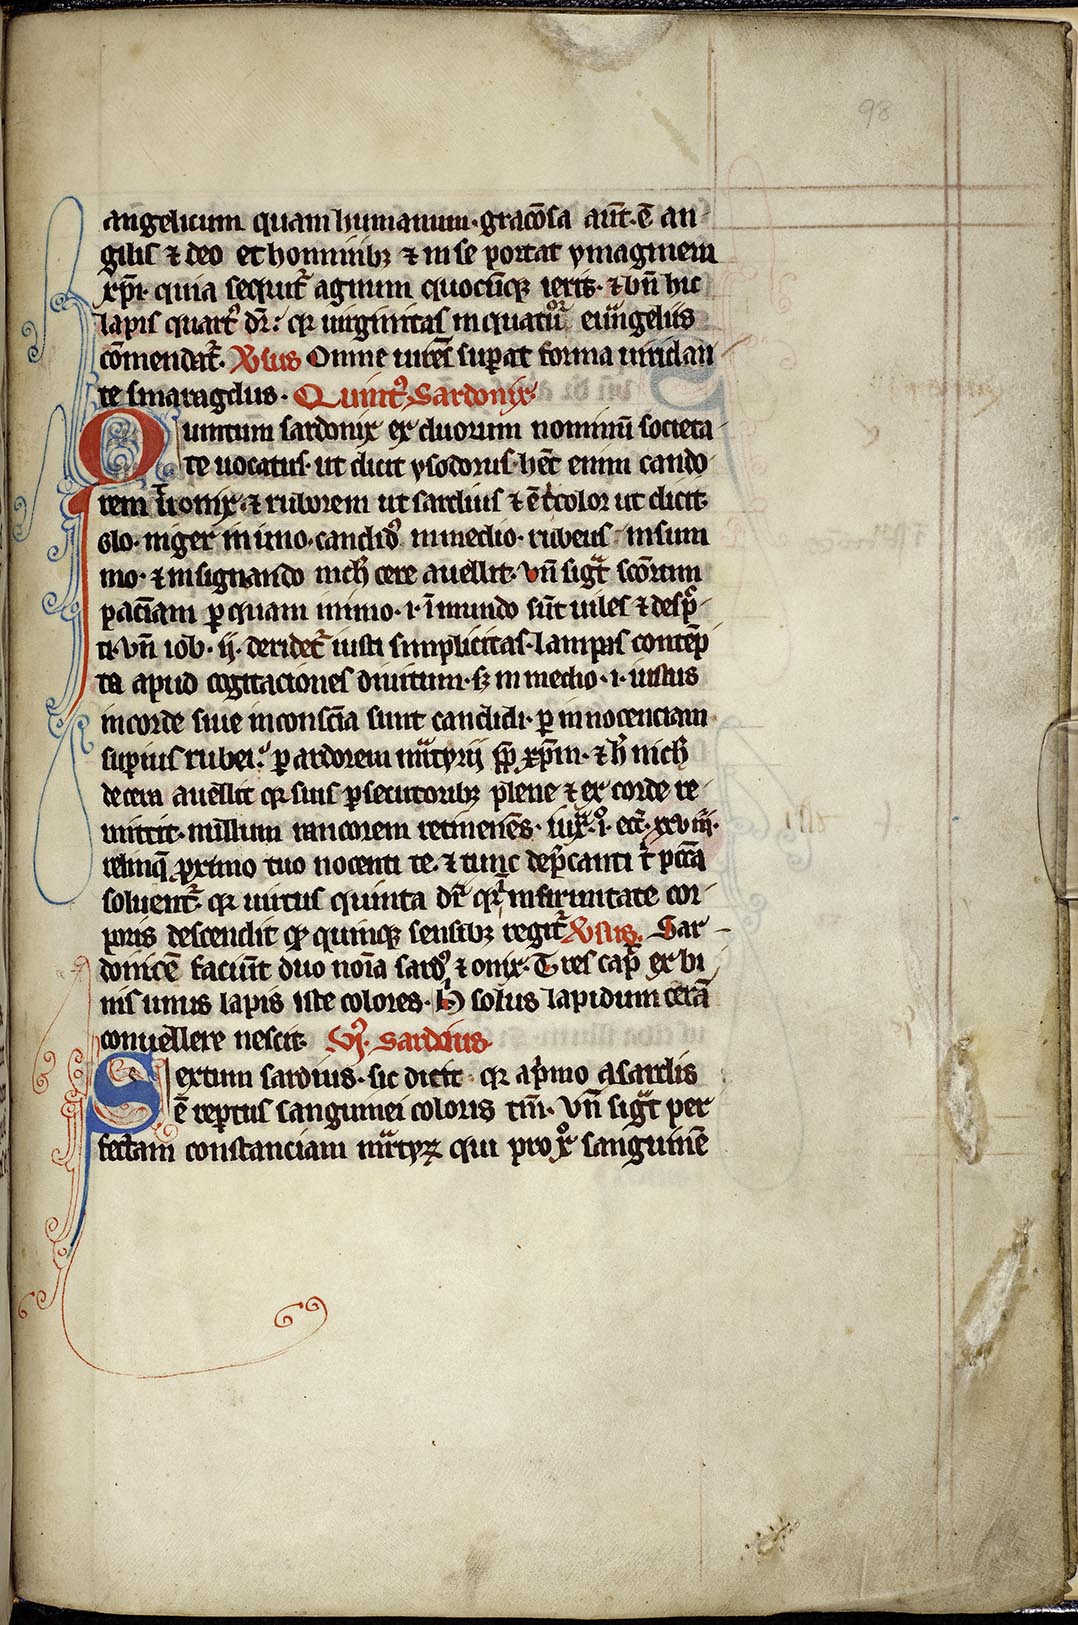 98
angelicum quam humanum. gracōsa aūt. ē an-
gilis ⁊ deo et hominibꝫ ⁊ in se portat ymaginem
xp̄i. quia seqͥuit᷑ agnum quocūqꝫ ierit. ⁊ bn̄ hic
lapis quartꝰ dr̄: qꝛ uirginitas in quatuͦr euͣngeliis
cōmendat᷑. Ꝟsus Omne uirēs suꝑat forma uiridan
te smaragdus. Quintꝰ Sardonix
Quintum sardonix ex duorum nominū societa-
te uocatus. ut dicit ysodorus. hēt enim cando-
rem onix. ⁊ ruborem ut sardius ⁊ ē tͥcolor ut dicit.
Slo. niger in imo. candidꝰ in medio. rubeus in sum
mo. ⁊ in signando nichͥ cere auellit. Vn̄ sigͣt sc̄orum
paciam ꝑ quam in imo .i. ī mundo sūt uiles ⁊ desp̄-
ti. vn̄ iob. ij. deridet᷑ iusti simplicitas. lampas contēp
ta apud cogitaciones diuitum. sꝫ in medio .i. intus
in corde siue in consciā sunt candidi. ꝑ innocenciam
suꝑius rubei. ꝑ ardorem mͣtyrij ꝓpt xp̄m. ⁊ hͥ nichͥ
de cera auellit qꝛ suis ꝑsecutoribꝫ plene ⁊ ex corde re-
mittit. nullum rancorem retinens. iuxͣ ecc̄. xxviij.
relinq̄ ꝓximo tuo nocenti te. ⁊ tunc dep̄canti tͥ pcc̄a
soluent᷑. qꝛ uirtus quinta dr̄ qꝛ in firmitate cor-
poris descendit qꝫ quinqꝫ sensibꝫ regit᷑ Ꝟsus. Sar-
donicē faciūt duo noīa sardꝰ ⁊ onix. Tres capͥ ex bi
nis unus lapis iste colores. Hͥ solus lapidum cerā
conuellere nescit. Vj. Sardius.
Sextum sardius. sic dicit qꝛ apͥmo a sardis
ē reꝑtus sanguinei coloris tm̄. Vn̄ sigͣt per
fectam constanciam mͣtyꝝ qui pro xͦ sanguinē